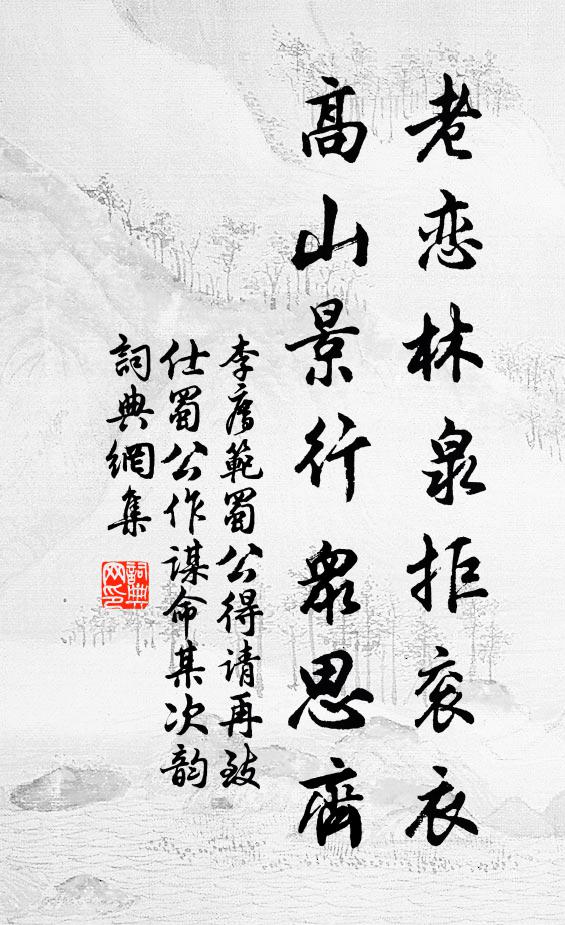 老恋林泉拒衮衣
高山景行眾思齊
李廌範蜀公得请再致
仕蜀公作谋命某次韵
詞典網集
詞典网印